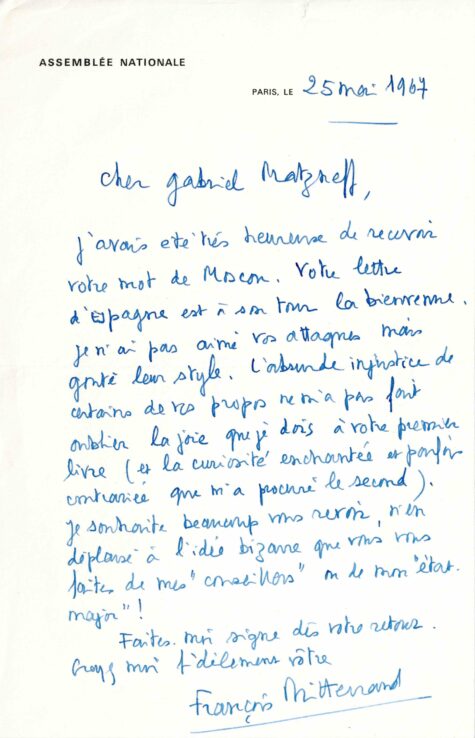 ASSEMBLÉE NATIONALE
PARIS, LE 25 mai 1967
Cher Gabriel Matzneff,
J'avais été très heureuse de recevoir
votre mot de Moscou. Votre lettre
d'Espagne est à son tour la bienvenue.
Je n'ai pas aimé vos attaques mais
goûté leur style. L'absurde injustice de
certains de vos propos ne m'a pas fait
oublier la joie que je dois à votre premier
livre (et la curiosité enchantée et parfois
contrariée que m'a procuré le second).
Je souhaite beaucoup vous revoir, n'en
déplaise à l'idée bizarre que vous vous
faites de mes "conseillers" ou de mon "état-
major" !
Faites-moi signe dès votre retour.
Croyez moi fidèlement vôtre
François Mitterrand